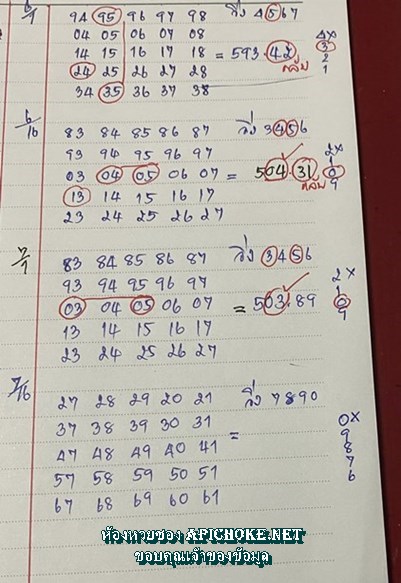 6/1 94 95 96 97 98 วิ่ง 4567
04 05 06 07 08 4x
14 15 16 17 18 = 593.42 3
24 25 26 27 28 กลับ 2
34 35 36 37 38 1
6/16 83 84 85 86 87 วิ่ง 3456
93 94 95 96 97 2x
03 04 05 06 07 = 504.31 1
13 14 15 16 17 กลับ 0
23 24 25 26 27 9
7/1 83 84 85 86 87 วิ่ง 3456
93 94 95 96 97 2x
03 04 05 06 07 = 503.89 1
13 14 15 16 17 0
23 24 25 26 27 9
7/16 27 28 29 20 21 วิ่ง 7890
37 38 39 30 31 0x
47 48 49 40 41 = 9
57 58 59 50 51 8
67 68 69 60 61 7
6
ห้องหวยซอง APICHOKE.NET
ขอบคุณเจ้าของข้อมูล